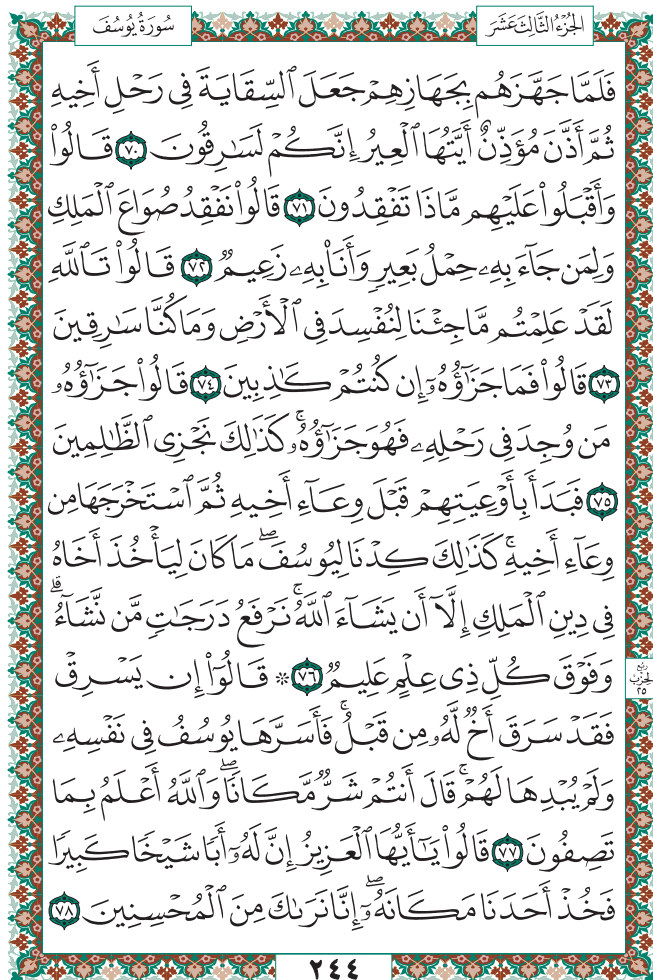 سُورَةُ يُوسُفَ
الجُزْءُ الثَّالِثَ عَشَرَ
فَلَمَّا جَهَّزَهُم بِجَهَازِهِمْ جَعَلَ ٱلسِّقَايَةَ فِى رَحْلِ أَخِيهِ
ثُمَّ أَذَّنَ مُؤَذِّنٌ أَيَّتُهَا ٱلْعِيرُ إِنَّكُمْ لَسَٰرِقُونَ ٧٠ قَالُوا۟
وَأَقْبَلُوا۟ عَلَيْهِم مَّاذَا تَفْقِدُونَ ٧١ قَالُوا۟ نَفْقِدُ صُوَاعَ ٱلْمَلِكِ
وَلِمَن جَآءَ بِهِۦ حِمْلُ بَعِيرٍ وَأَنَا۠ بِهِۦ زَعِيمٌ ٧٢ قَالُوا۟ تَٱللَّهِ
لَقَدْ عَلِمْتُم مَّا جِئْنَا لِنُفْسِدَ فِى ٱلْأَرْضِ وَمَا كُنَّا سَٰرِقِينَ
٧٣ قَالُوا۟ فَمَا جَزَٰٓؤُهُۥٓ إِن كُنتُمْ كَٰذِبِينَ ٧٤ قَالُوا۟ جَزَٰٓؤُهُۥ
مَن وُجِدَ فِى رَحْلِهِۦ فَهُوَ جَزَٰٓؤُهُۥ ۚ كَذَٰلِكَ نَجْزِى ٱلظَّٰلِمِينَ
٧٥ فَبَدَأَ بِأَوْعِيَتِهِمْ قَبْلَ وِعَآءِ أَخِيهِ ثُمَّ ٱسْتَخْرَجَهَا مِن
وِعَآءِ أَخِيهِ ۚ كَذَٰلِكَ كِدْنَا لِيُوسُفَ ۖ مَا كَانَ لِيَأْخُذَ أَخَاهُ
فِى دِينِ ٱلْمَلِكِ إِلَّآ أَن يَشَآءَ ٱللَّهُ ۚ نَرْفَعُ دَرَجَٰتٍ مَّن نَّشَآءُ ۗ
وَفَوْقَ كُلِّ ذِى عِلْمٍ عَلِيمٌ ٧٦ ۞ قَالُوٓا۟ إِن يَسْرِقْ
فَقَدْ سَرَقَ أَخٌ لَّهُۥ مِن قَبْلُ ۚ فَأَسَرَّهَا يُوسُفُ فِى نَفْسِهِۦ
وَلَمْ يُبْدِهَا لَهُمْ ۚ قَالَ أَنتُمْ شَرٌّ مَّكَانًا ۖ وَٱللَّهُ أَعْلَمُ بِمَا
تَصِفُونَ ٧٧ قَالُوا۟ يَٰٓأَيُّهَا ٱلْعَزِيزُ إِنَّ لَهُۥٓ أَبًا شَيْخًا كَبِيرًا
فَخُذْ أَحَدَنَا مَكَانَهُۥٓ ۖ إِنَّا نَرَىٰكَ مِنَ ٱلْمُحْسِنِينَ ٧٨
ربع
الحزب
٢٥
٢٤٤